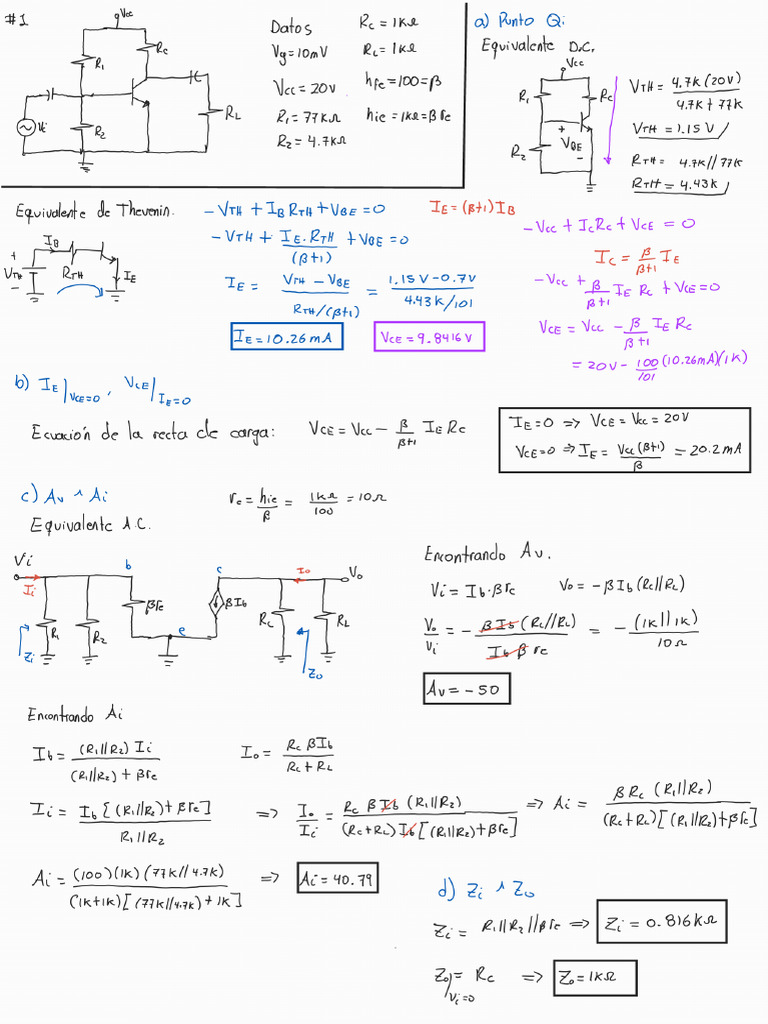 #1
Vcc
R1
Rc
R2
RL
Vi
Datos
Vg=10mV
Vcc=20V
R1=77KΩ
R2=4.7KΩ
Rc=1KΩ
RL=1KΩ
hfe=100=β
hie=1KΩ=βre
a) Punto Q:
Equivalente D.C.
Vcc
R1
Rc
R2
+
VBE
-
VTH = 4.7K(20V) / 4.7K+77K
VTH = 1.15V
RTH = 4.7K//77K
RTH = 4.43K
Equivalente de Thevenin.
IB
+
VTH
-
RTH
IE
-VTH + IB RTH + VBE = 0
IE = (β+1) IB
-VTH + IE.RTH / (β+1) + VBE = 0
IE = VTH - VBE / RTH/(β+1) = 1.15V-0.7V / 4.43K/101
IE = 10.26mA
VCE = 9.8416V
-Vcc + IcRc + VCE = 0
Ic = β/β+1 IE
-Vcc + β/β+1 IE Rc + VCE = 0
VCE = Vcc - β/β+1 IE Rc
= 20V - 100/101 (10.26mA)(1K)
b) IE|VCE=0 , VCE|IE=0
Ecuación de la recta de carga: VCE = Vcc - β/β+1 IE Rc
IE=0 => VCE = Vcc = 20V
VCE=0 => IE = Vcc(β+1)/β = 20.2mA
c) Av ^ Ai
re = hie/β = 1KΩ/100 = 10Ω
Equivalente A.C.
Vi
Ii
b
c
Io
Vo
Zi
R1
R2
βre
e
βIb
Rc
RL
Zo
Encontrando Av.
Vi = Ib.βre
Vo = -βIb(Rc//RL)
Vo/Vi = - βIb(Rc//RL) / Ib β re = - (1K||1K) / 10Ω
Av = -50
Encontrando Ai
Ib = (R1//R2) Ii / (R1//R2) + βre
Io = Rc βIb / Rc+RL
Ii = Ib[(R1//R2)+βre] / R1//R2 => Io/Ii = Rc β Ib (R1//R2) / (Rc+RL) Ib [(R1//R2)+βre] => Ai = βRc (R1//R2) / (Rc+RL)[(R1//R2)+βre]
Ai = (100)(1K)(77K//4.7K) / (1K+1K)[(77K//4.7K)+1K] => Ai = 40.79
d) Zi ^ Zo
Zi = R1//R2//βre => Zi = 0.816KΩ
Zo|Vi=0 = Rc => Zo = 1KΩ